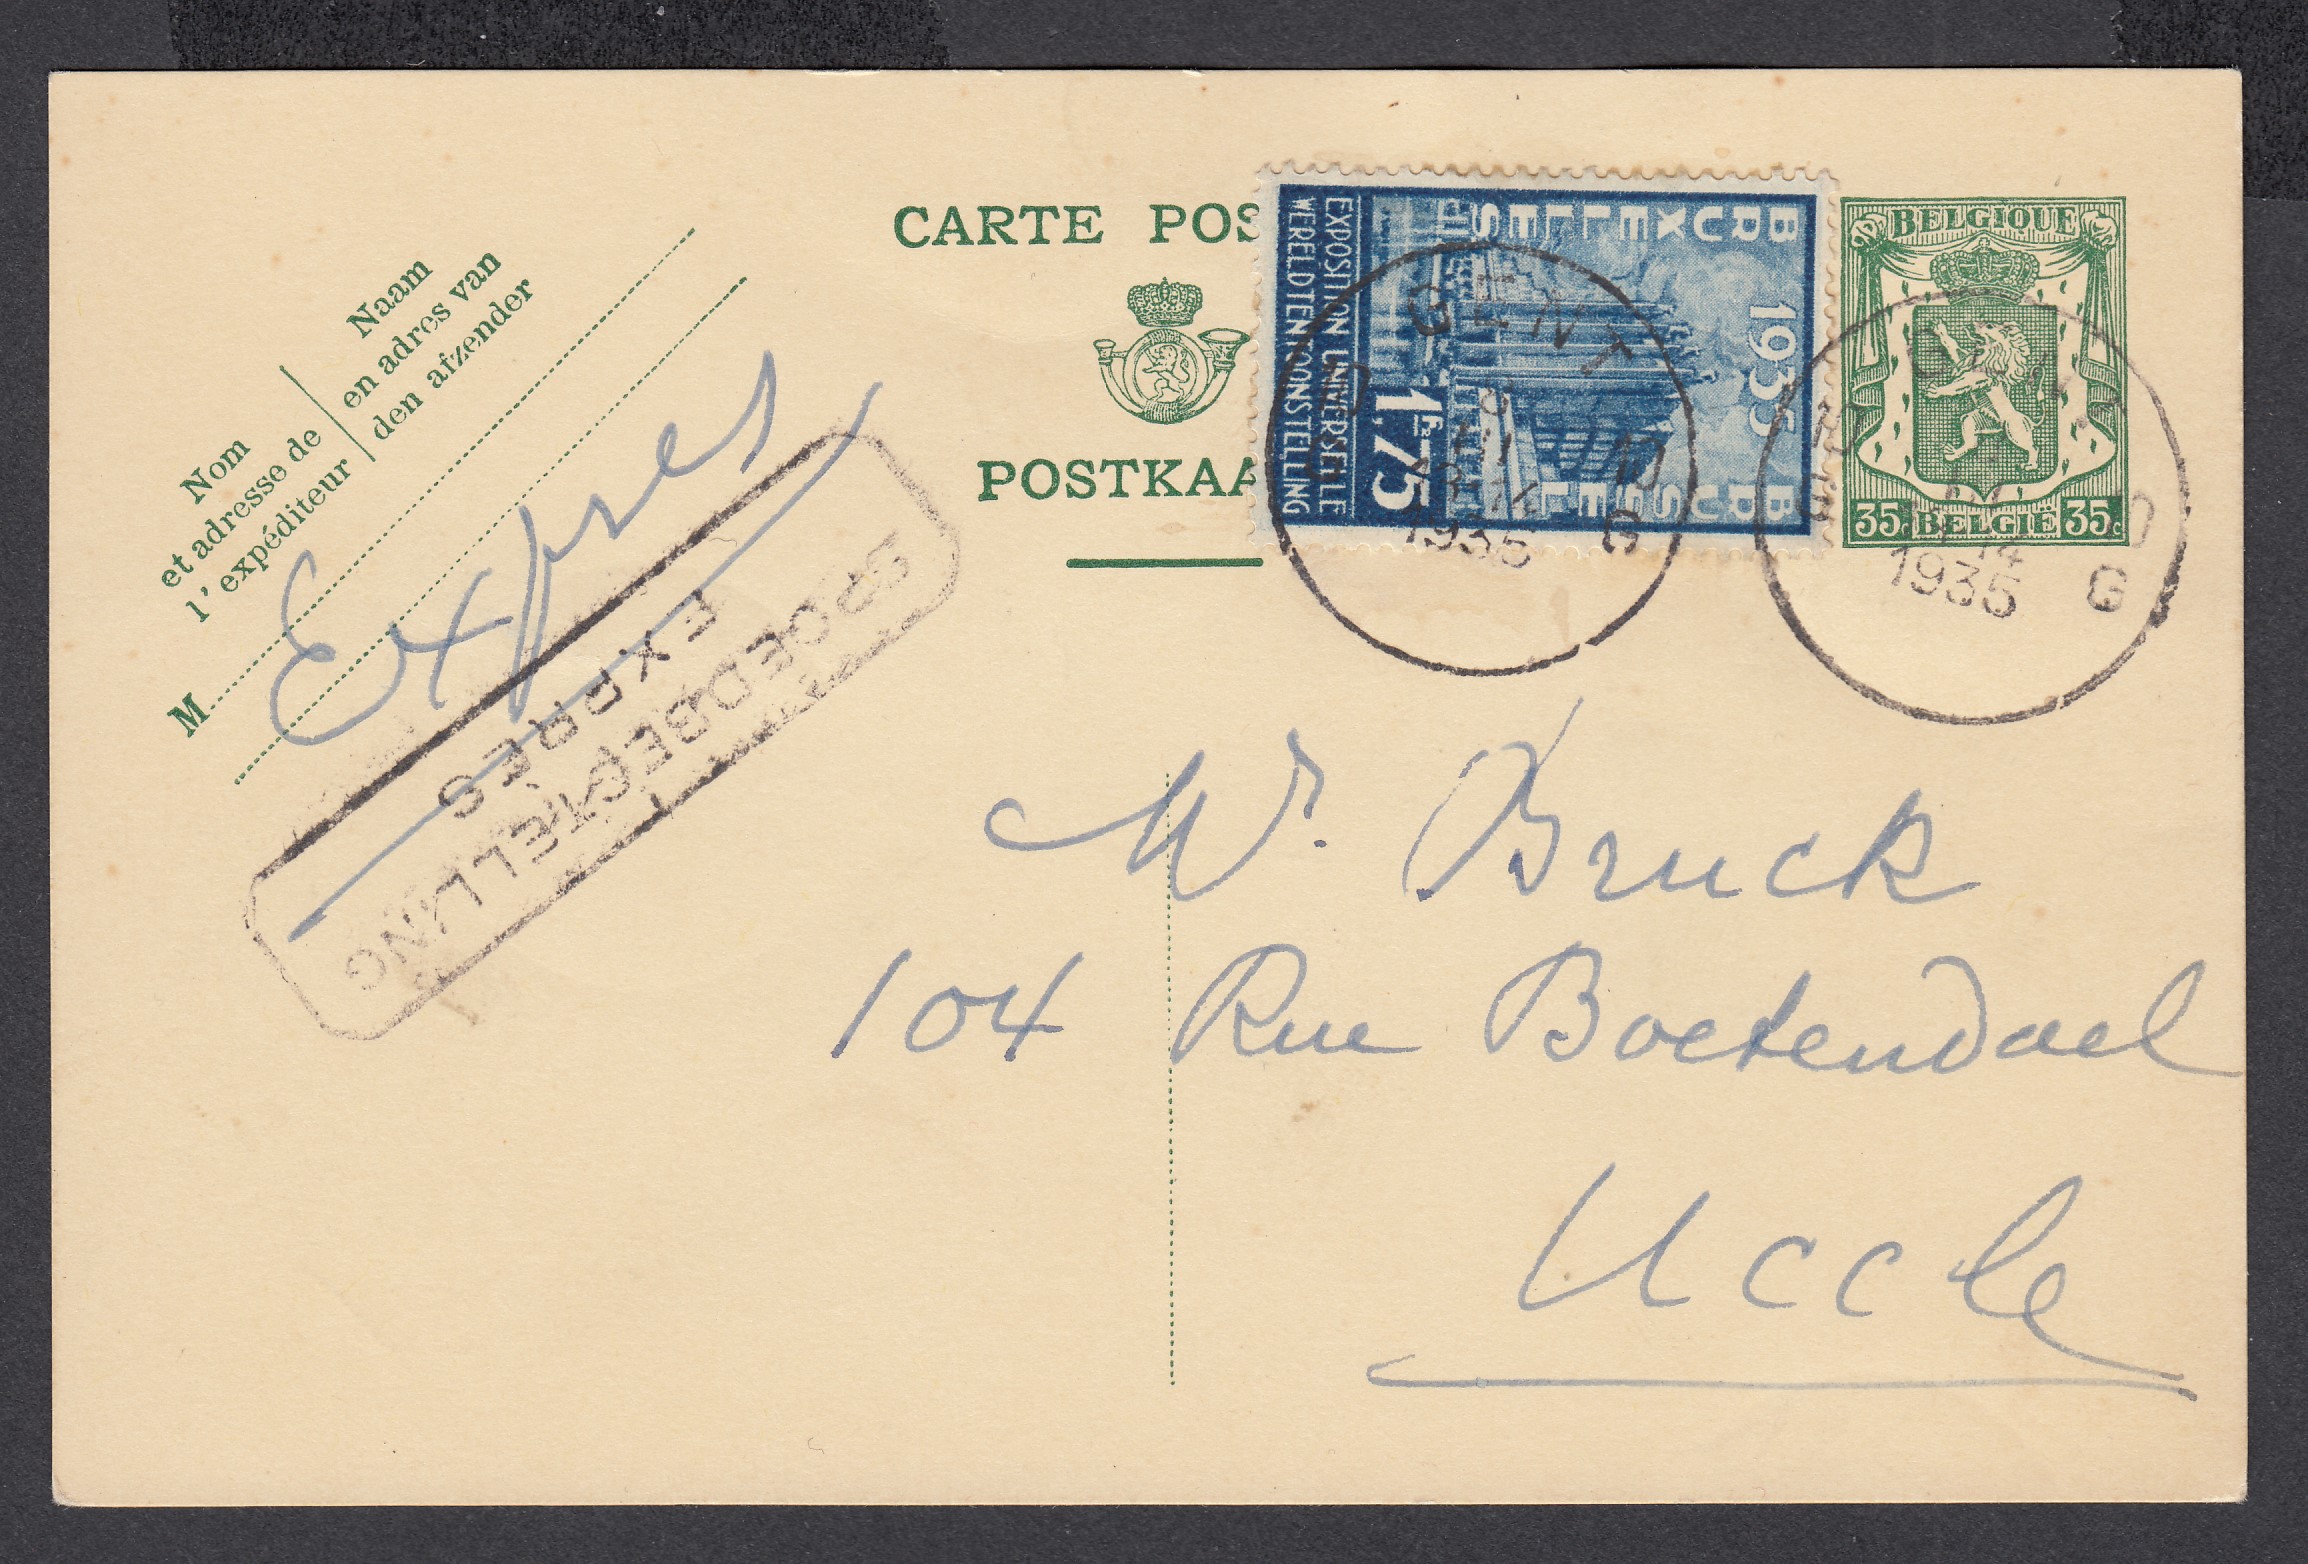 CARTE POS
POSTKAA
Naam
en adres van
den afzender
Nom
et adresse de
l'expéditeur
M
Expres
EXPRES
SPOEDBESTELLING
BRUXELLES
1935
BRUSSEL
EXPOSITION UNIVERSELLE
WERELDTENTOONSTELLING
1Fr.75
GENT
1935
G
BELGIQUE
35c BELGIË 35c
14
1935
G
Mr. Bruck
104 Rue Boetendael
Uccle